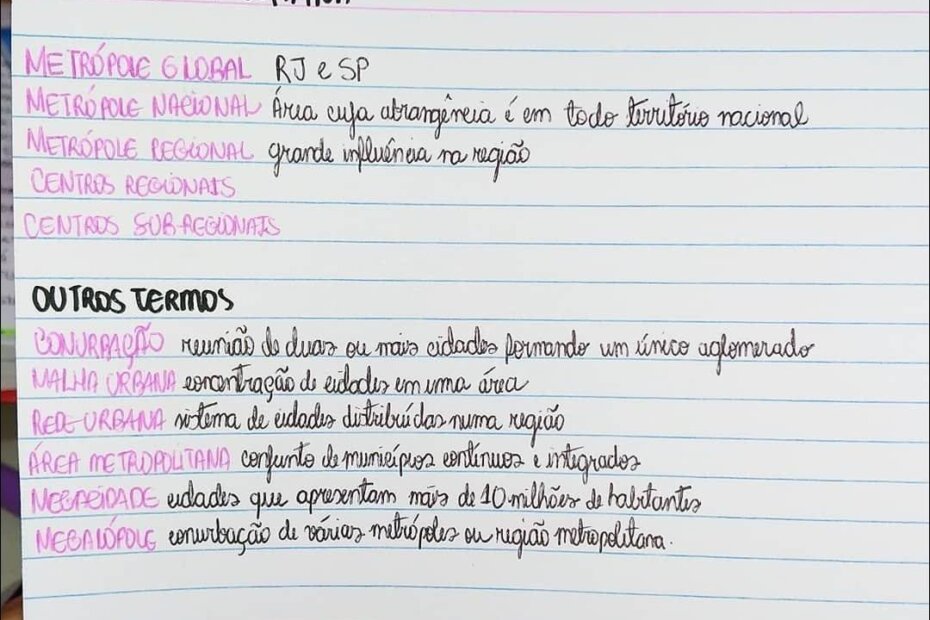 METRÓPOLE GLOBAL RJ e SP
METRÓPOLE NACIONAL Área cuja abrangência é em todo território nacional
METRÓPOLE REGIONAL grande influência na região
CENTROS REGIONAIS
CENTROS SUB-REGIONAIS
OUTROS TERMOS
CONURBAÇÃO reunião de duas ou mais cidades formando um único aglomerado
MALHA URBANA concentração de cidades em uma área
REDE URBANA sistema de cidades distribuídas numa região
ÁREA METROPOLITANA conjunto de municípios contínuos e integrados
MEGACIDADE cidades que apresentam mais de 10 milhões de habitantes
MEGALÓPOLE conurbação de várias metrópoles ou região metropolitana.